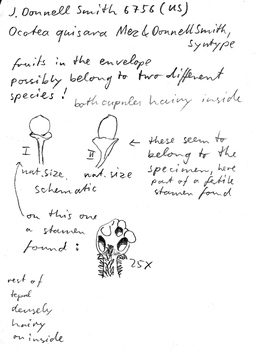 J. Donnell Smith 6756 (US)
Ocotea quisara Mez & Donnell Smith,
syntype
fruits in the envelope
possibly belong to two different
species!
both cupules hairy inside
I
II
nat. size,
schematic
nat. size
these seem to
belong to the
specimen, here
part of a fertile
stamen found
on this one
a stamen
found:
25x
rest of
tepal
densely
hairy
on inside